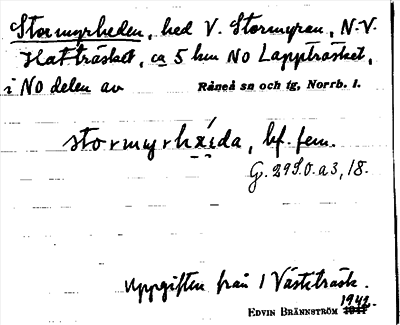 Stormyrheden, hed V. Stormyran, N.V.
Hatträsket, ca 5 km NO Lappträsket,
i NO delen av Råneå sn och tg, Norrb. l.
stormyrhæida, bf. fem.
G. 29S.0.a3, 18.
Uppgiften från 1 Västeträsk.
1942.
EDVIN BRÄNNSTRÖM 1941